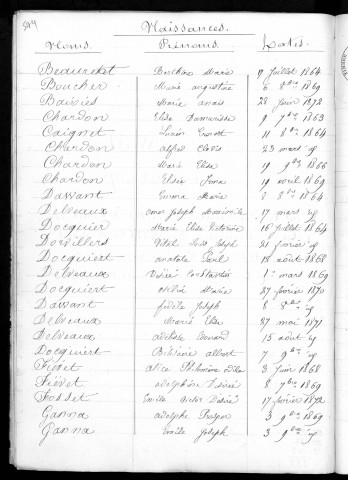 Naissances.
Noms. Prénoms. Dates.
Beaurekat Marie 7 Juillet 1864
Boucher Marie augustine 6 8bre 1869
Baisies Marie anais 28 Juin 1872
Chardon Elise 9 7bre 1863
Caignet Ernest 11 8bre 1864
Chardon Clovis 23 mars
Chardon Marie Elise 10 9bre 1866
Chardon Elisée 19 avril 1869
Dawant Emma Marie 8 8bre 1864
Delveaux omer Joseph 17 mars
Docquier Marie Elise Victorine 16 Juillet 1864
Dorvillers Vital Joseph 21 février
Docquiert anatole Paul 18 août 1868
Delveaux Désiré Constantin 1er mars 1869
Docquiert Marie 27 février 1870
Dawant fidèle Joseph 8
Delveaux Marie Elise 27 mai 1871
Delveaux Edouard 15 août
Docquiert albert 7 9bre
Fievet alice Philomène 3 Juin 1868
Fievet adelphine Désirée 8 7bre 1869
Fosset Emile Victor Désiré 17 février 1872
Ganna adelphe Prosper 3 9bre 1869
Ganna Emile Joseph 3 9bre